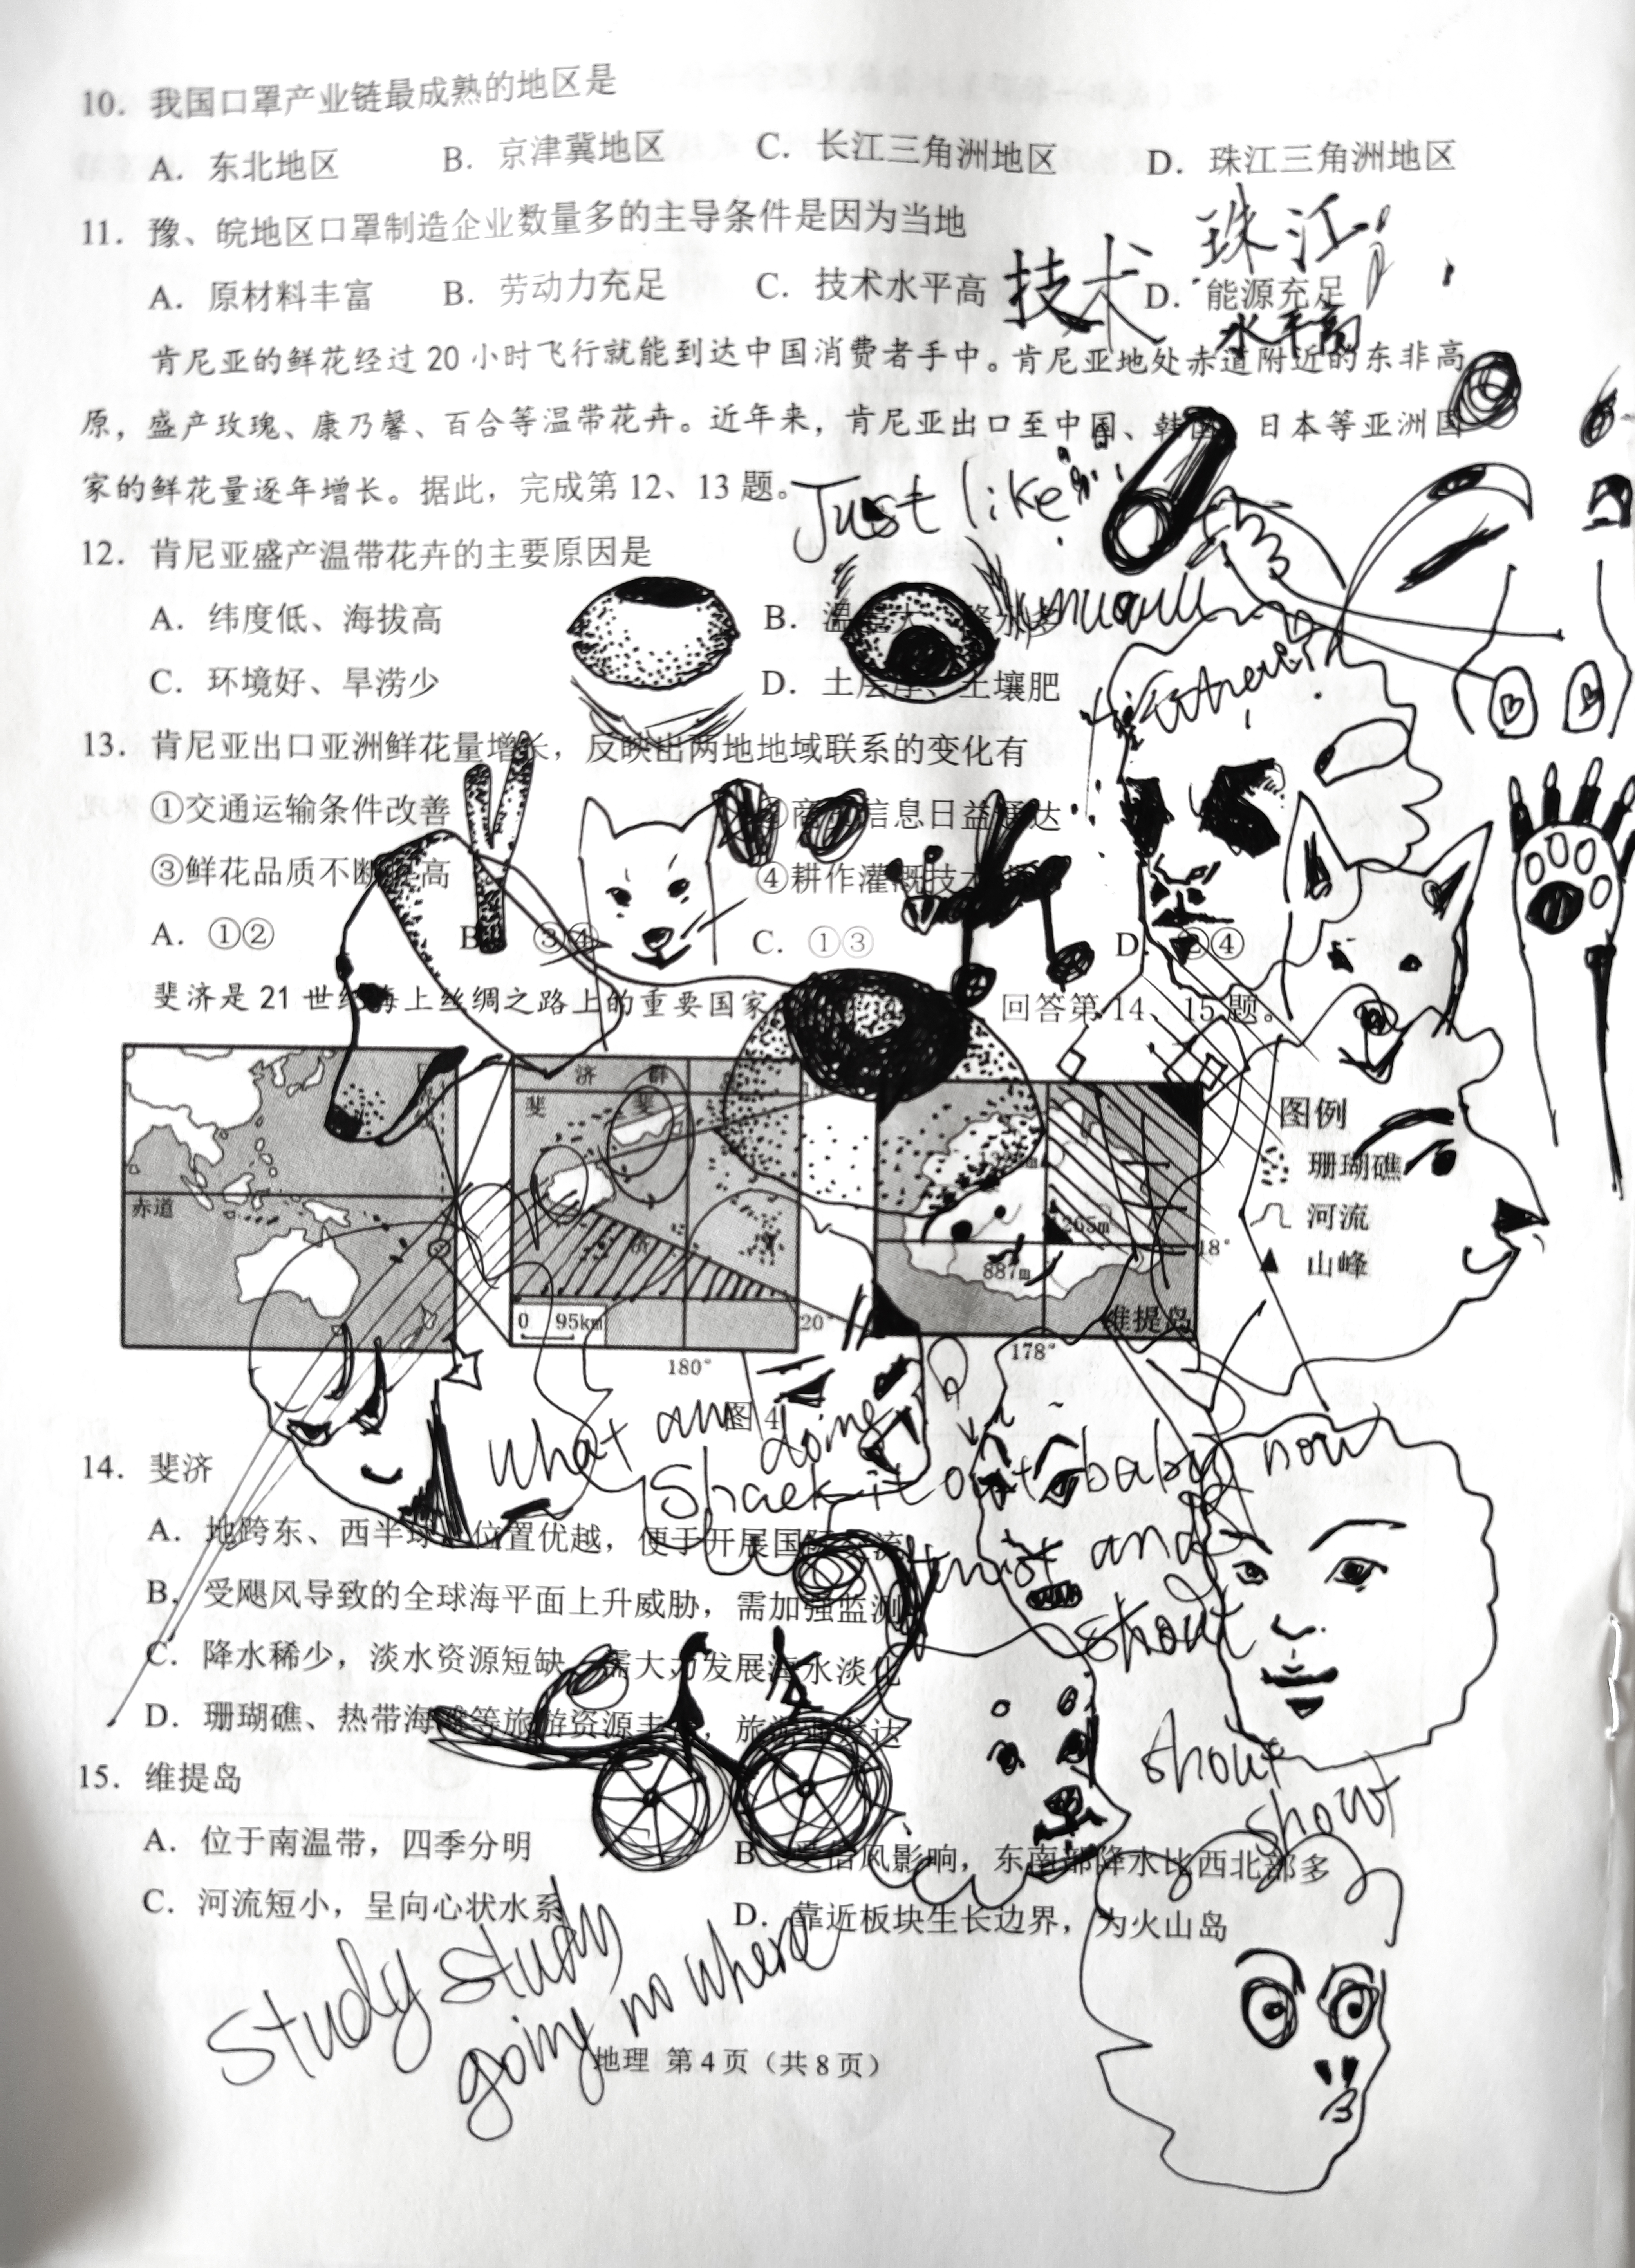 10．我国口罩产业链最成熟的地区是
A．东北地区 B．京津冀地区 C．长江三角洲地区 D．珠江三角洲地区
11．豫、皖地区口罩制造企业数量多的主导条件是因为当地
珠江
A．原材料丰富 B．劳动力充足 C．技术水平高 技术 D．能源充足
水平高
肯尼亚的鲜花经过 20 小时飞行就能到达中国消费者手中。肯尼亚地处赤道附近的东非高
原，盛产玫瑰、康乃馨、百合等温带花卉。近年来，肯尼亚出口至中国、韩国、日本等亚洲国
家的鲜花量逐年增长。据此，完成第 12、13 题。
Just like
12．肯尼亚盛产温带花卉的主要原因是
A．纬度低、海拔高 B．温 大、降水多
C．环境好、旱涝少 D．土层厚、土壤肥
13．肯尼亚出口亚洲鲜花量增长，反映出两地地域联系的变化有
①交通运输条件改善 ②商 信息日益通达
③鲜花品质不断提高 ④耕作灌溉技术
A．①② B．③④ C．①③ D．②④
斐济是 21 世纪海上丝绸之路上的重要国家 回答第 14、15 题。
日界线
赤道
斐 济 群 岛
斐
济
0 95km
20°
180°
265m
887m
18°
178°
维提岛
图例
珊瑚礁
河流
山峰
图 4
what am doing
Shack it out baby now
twist and
shout
shout
shout
14．斐济
A．地跨东、西半球，位置优越，便于开展国际交流
B．受飓风导致的全球海平面上升威胁，需加强监测
C．降水稀少，淡水资源短缺，需大力发展海水淡化
D．珊瑚礁、热带海滩等旅游资源丰富，旅游业发达
15．维提岛
A．位于南温带，四季分明 B．受信风影响，东南部降水比西北部多
C．河流短小，呈向心状水系 D．靠近板块生长边界，为火山岛
study study
going no where
地理 第 4 页（共 8 页）